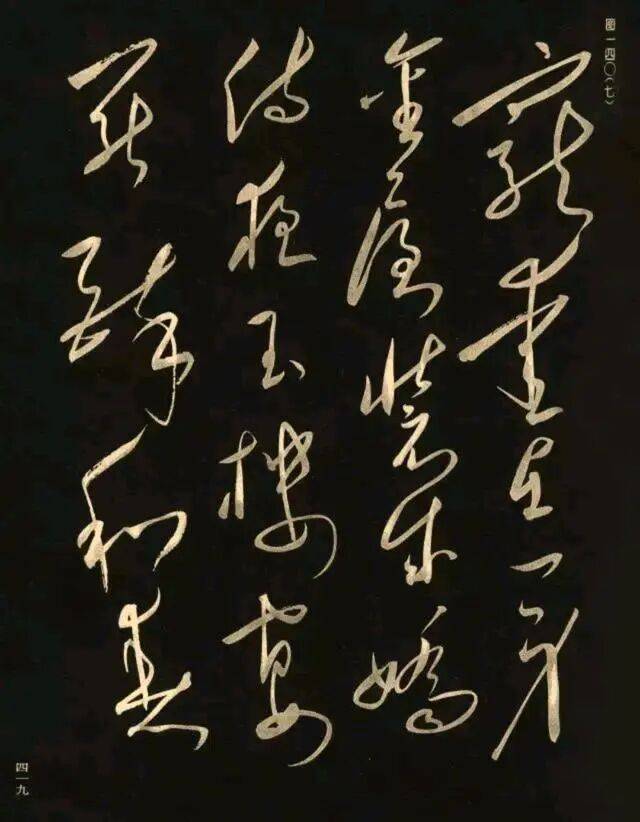 圖一四〇(七)
寵愛在一身
金屋妝成嬌
侍夜玉樓宴
罷醉和春
四一九